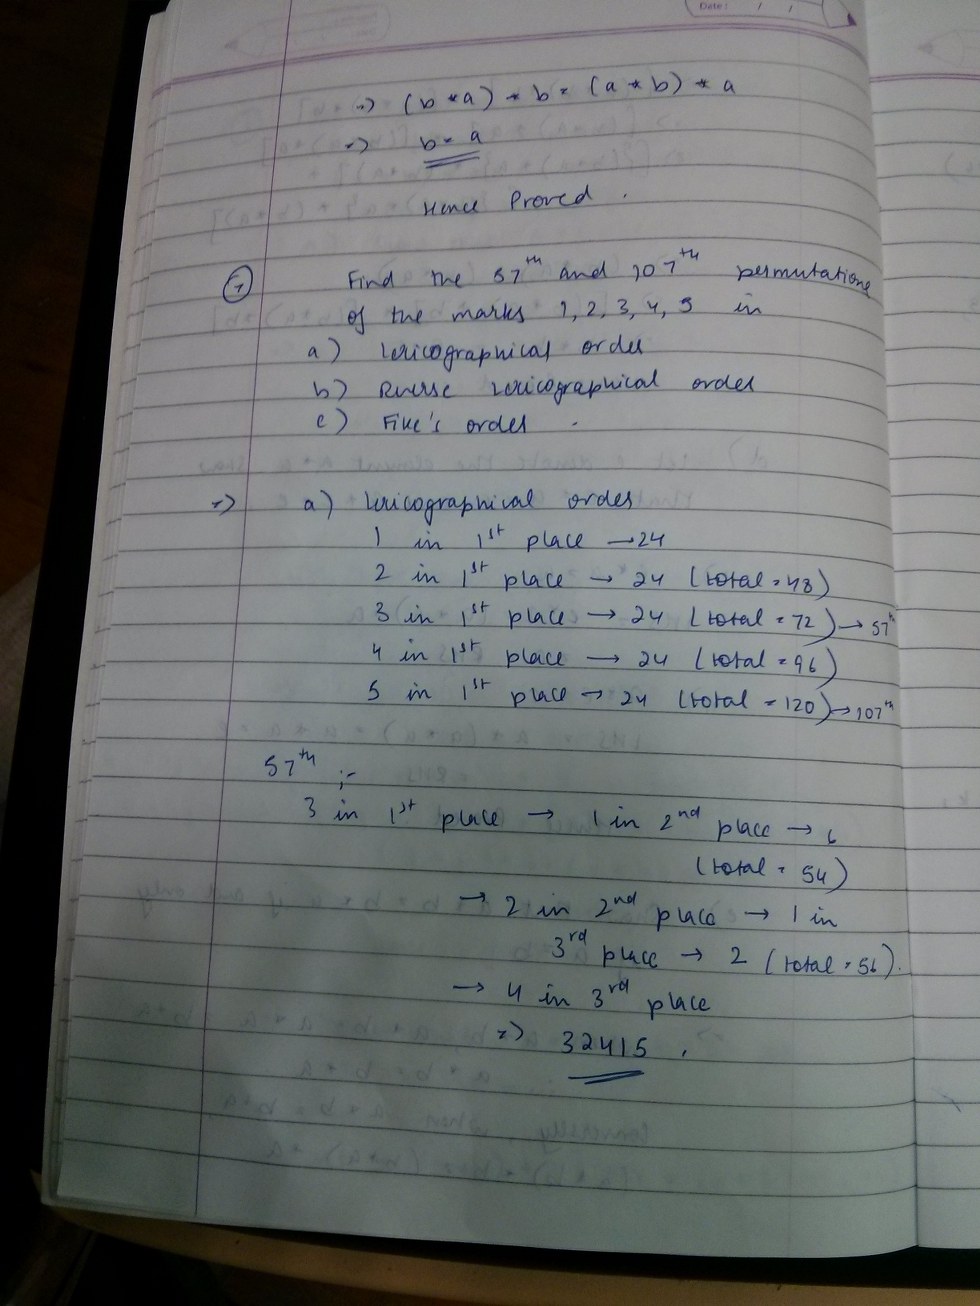 Date: / /
=> (b * a) * b = (a * b) * a
=> b = a
Hence Proved.
7 Find the 57th and 107th permutations
of the marks 1, 2, 3, 4, 5 in
a) lexicographical order
b) Reverse lexicographical order
c) Fike's order.
=> a) lexicographical order
1 in 1st place → 24
2 in 1st place → 24 (total = 48)
3 in 1st place → 24 (total = 72) → 57th
4 in 1st place → 24 (total = 96)
5 in 1st place → 24 (total = 120) → 107th
57th :-
3 in 1st place → 1 in 2nd place → 6
(total = 54)
→ 2 in 2nd place → 1 in
3rd place → 2 (total = 56).
→ 4 in 3rd place
=> 32415.